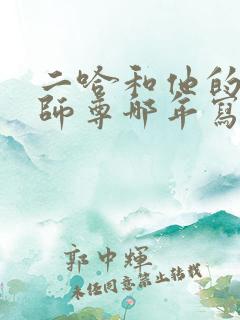 二哈和他的
師尊那年寫
郭中輝
未经同意禁止转载